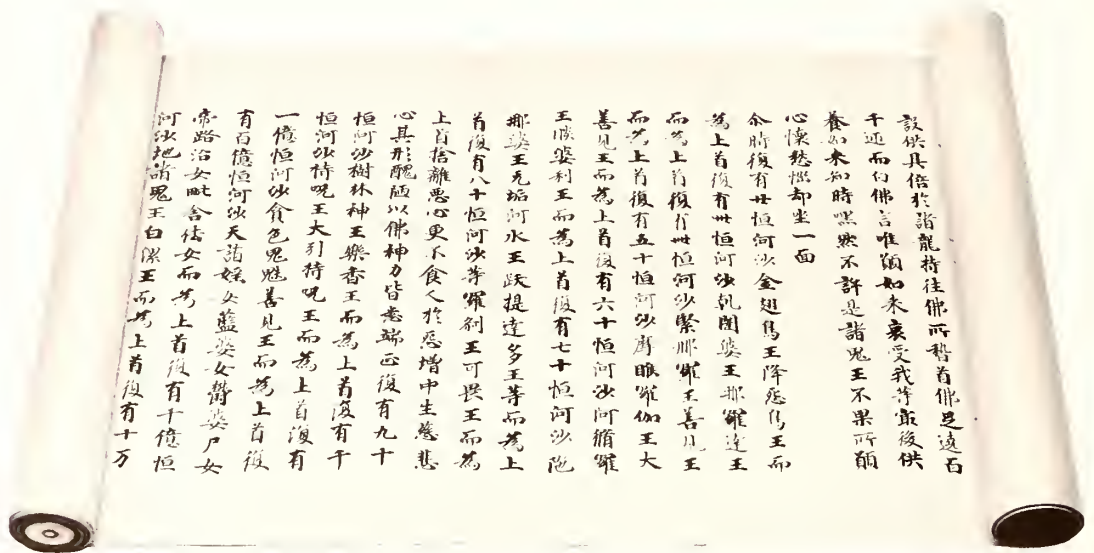 設供具倍於諸龍持往佛所稽首佛足遶百
千迊而白佛言唯願如来哀受我等最後供
養如来知時嘿然不許是諸鬼王不果所願
心懷愁惱却坐一面
尒時復有廿恒河沙金翅鳥王降怨鳥王而
為上首復有卅恒河沙乹闥婆王那羅達王
而為上首復有卌恒河沙緊那羅王善見王
而為上首復有五十恒河沙摩睺羅伽王大
善見王而為上首復有六十恒河沙阿脩羅
王睒婆利王而為上首復有七十恒河沙陁
那婆王无垢河水王跋提達多王等而為上
首復有八十恒河沙等羅刹王可畏王而為
上首捨離惡心更不食人於怨憎中生慈悲
心其形醜陋以佛神力皆悉端正復有九十
恒河沙樹林神王樂香王而為上首復有千
恒河沙持呪王大引持呪王而為上首復有
一億恒河沙貪色鬼魅善見王而為上首復
有百億恒河沙天諸婇女藍婆女欝婆尸女
帝路沾女毗舍佉女而為上首復有千億恒
河沙地諸鬼王白濕王而為上首復有十万